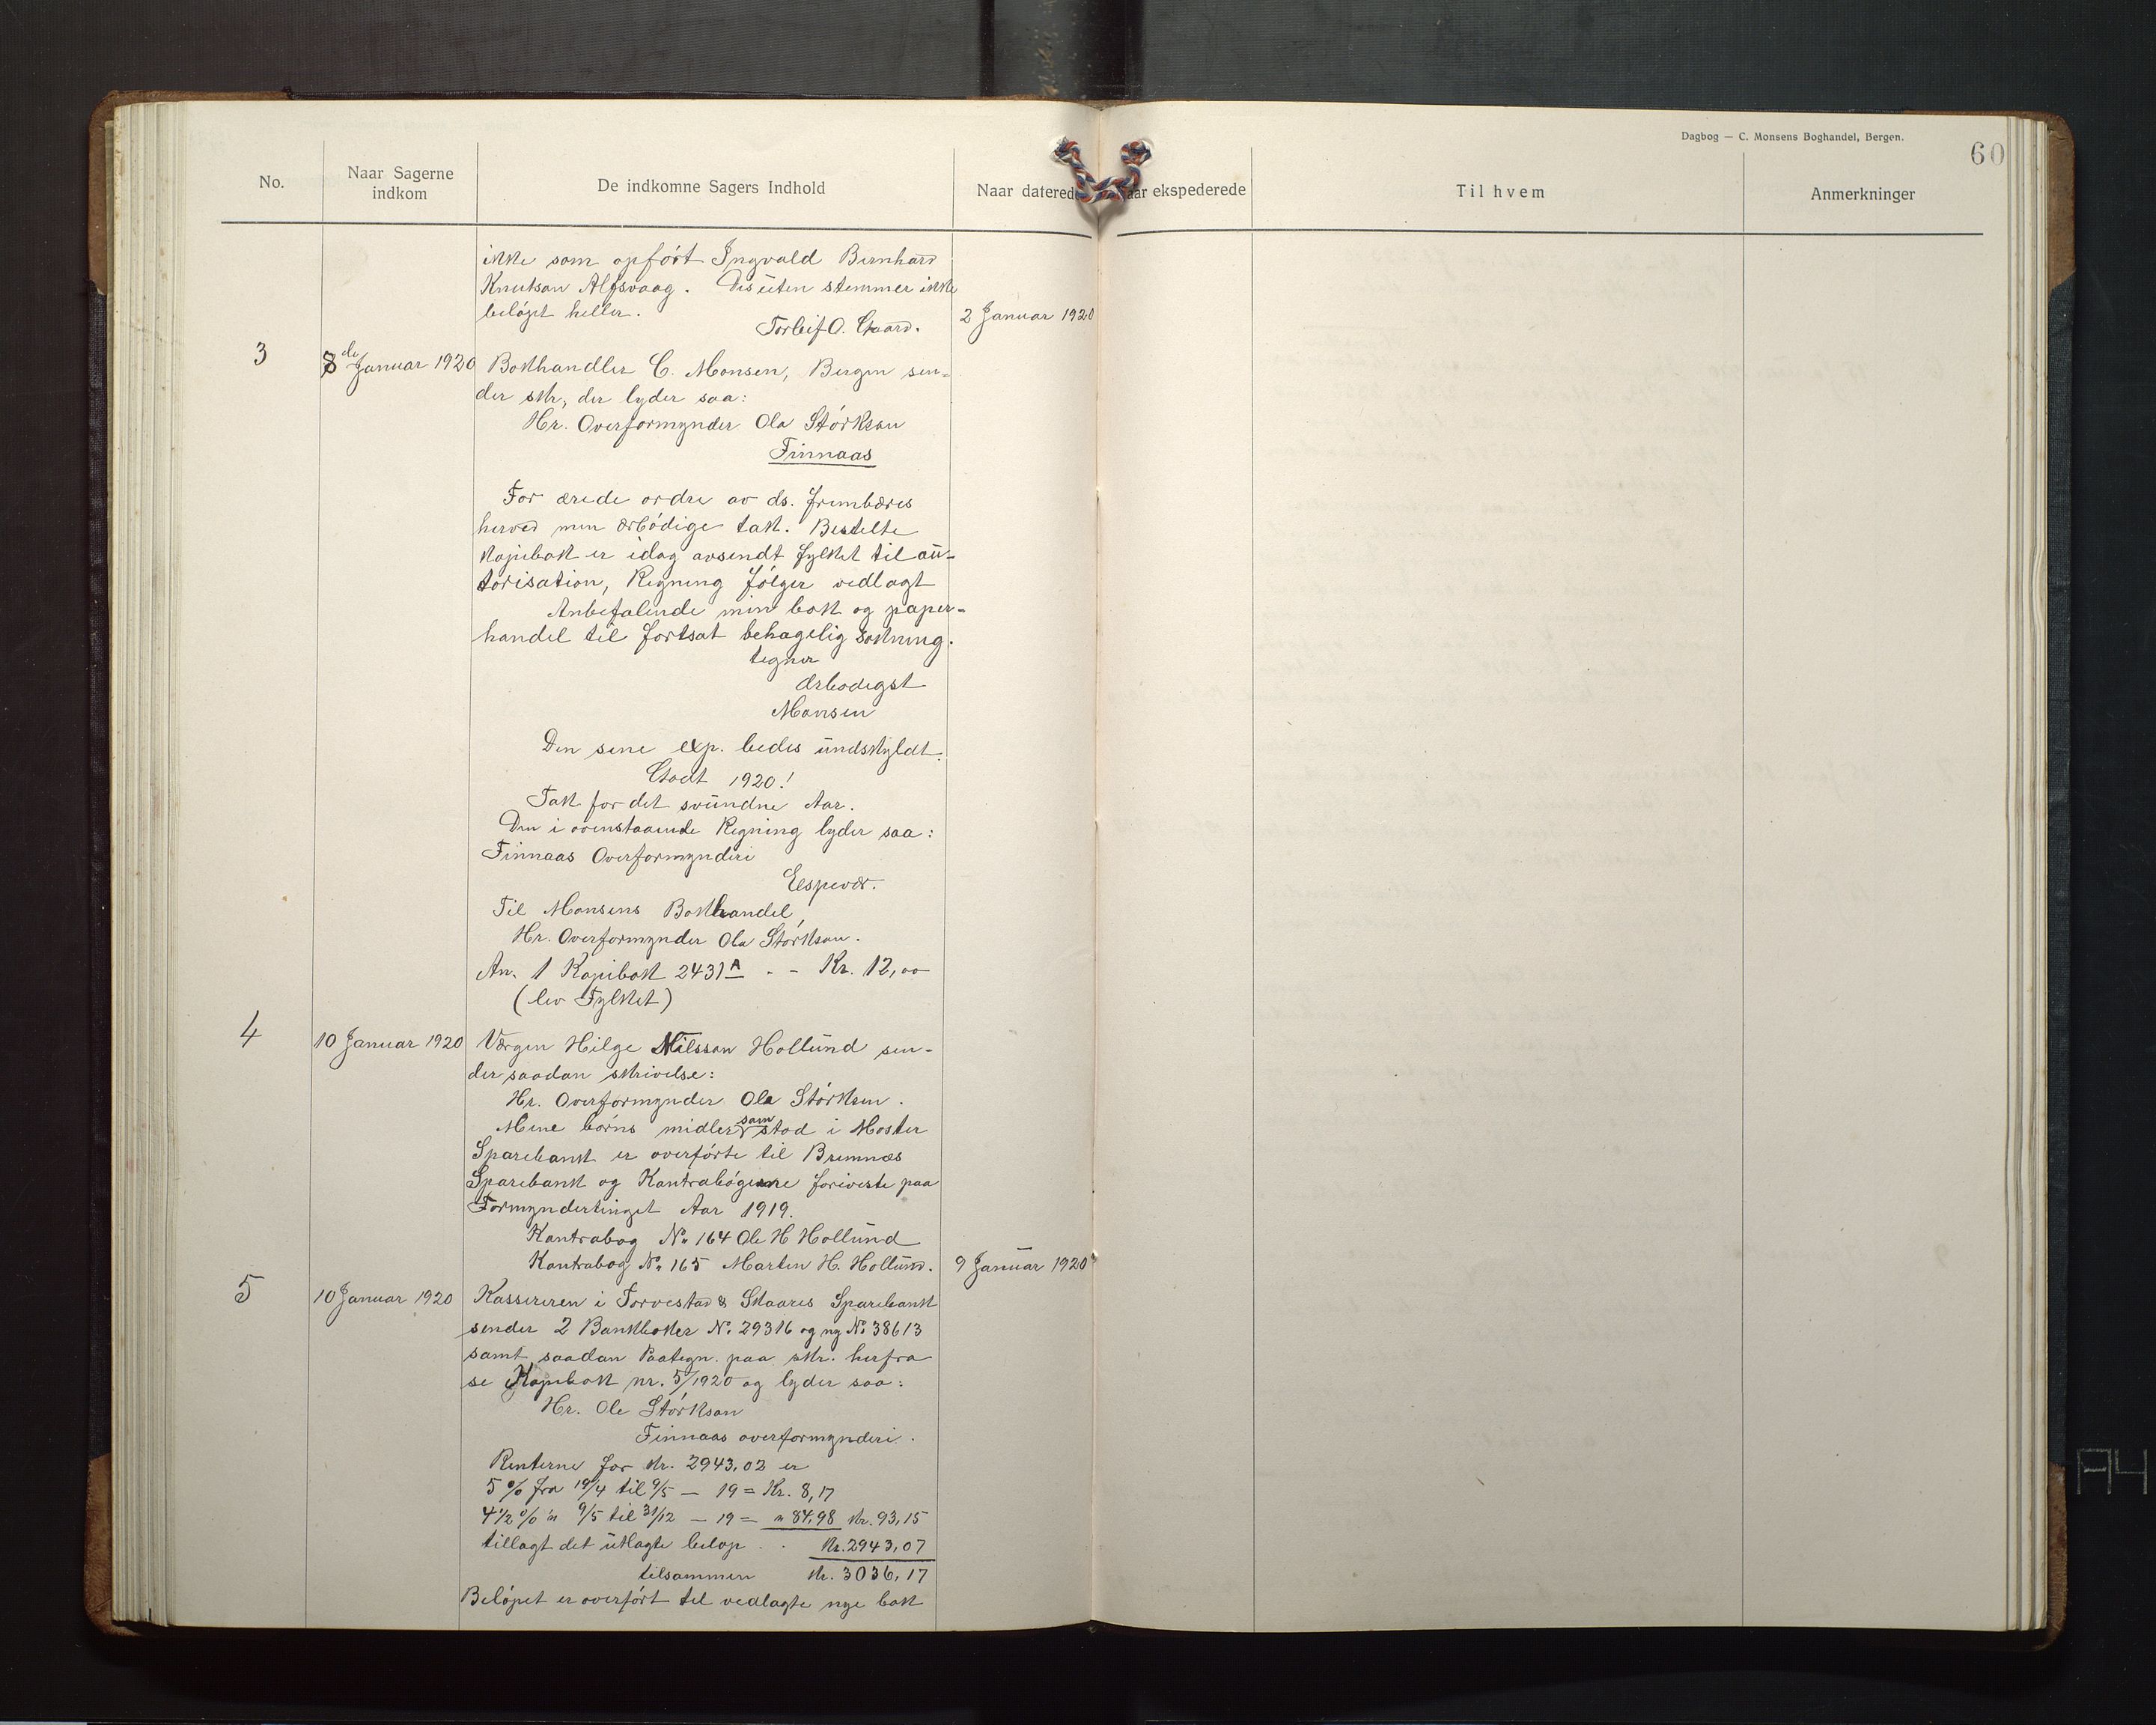 Dagbog — C. Monsens Boghandel, Bergen.
60
No.
Naar Sagerne indkom
De indkomne Sagers Indhold
Naar daterede
Naar ekspederede
Til hvem
Anmerkninger
ikke som opført Ingvald Bernhard
Knutson Alfsvaag. Desuten stemmer ikke
beløpet heller.
Torleif O. Gaard.
2 Januar 1920
3
8de Januar 1920
Bokhandler C. Monsen, Bergen sen-
der skr, der lyder saa:
Hr. Overformynder Ola Størkson
Finnaas
For ærede ordre av ds. frembæres
herved min ærbødige takk. Bestelte
Kopibok er idag avsendt fylket til au-
torisation, Regning følger vedlagt
Anbefalende min bok og papir-
handel til fortsat behagelig søkning.
tegner
Ærbødigst
Monsen
Den sene exp. bedes undskyldt.
Godt 1920!
Takk for det svundne Aar.
Den i ovenstaaende Regning lyder saa:
Finnaas Overformynderi
Espevær.
Til Monsens Bokhandel,
Hr. Overformynder Ola Størkson.
An. 1 Kopibok 2431 A - - Kr. 12,00
(lev Fylket)
4
10 Januar 1920
Værgen Hilge Nilsson Hollund sen-
der saadan skrivelse:
Hr. Overformynder Ola Størksen.
Mine børns midler som stod i Moster
Sparebank er overførte til Bremnæs
Sparebank og Kontrabøgerne foreviste paa
Formyndertinget Aar 1919.
Kontrabog No 164 Ole H Hollund
Kontrabog No 165 Marten H. Hollund.
9 Januar 1920
5
10 Januar 1920
Kassereren i Torvestad & Skaares Sparebank
sender 2 Bankbøker No. 29316 og ny No 38613
samt saadan Paategn. paa skr. herfra
se Kopibok nr. 5/1920 og lyder saa:
Hr. Ole Størkson
Finnaas overformynderi.
Renterne for kr. 2943,02 er
5 % fra 19/4 til 9/5 — 19 = Kr. 8,17
4 1/2 % " 9/5 til 31/12 — 19 = " 84,98 kr. 93,15
tillagt det utlagte beløp . . Kr. 2943,07
tilsammen kr. 3036,17
Beløpet er overført til vedlagte nye bok